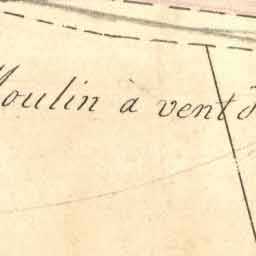 Moulin à vent